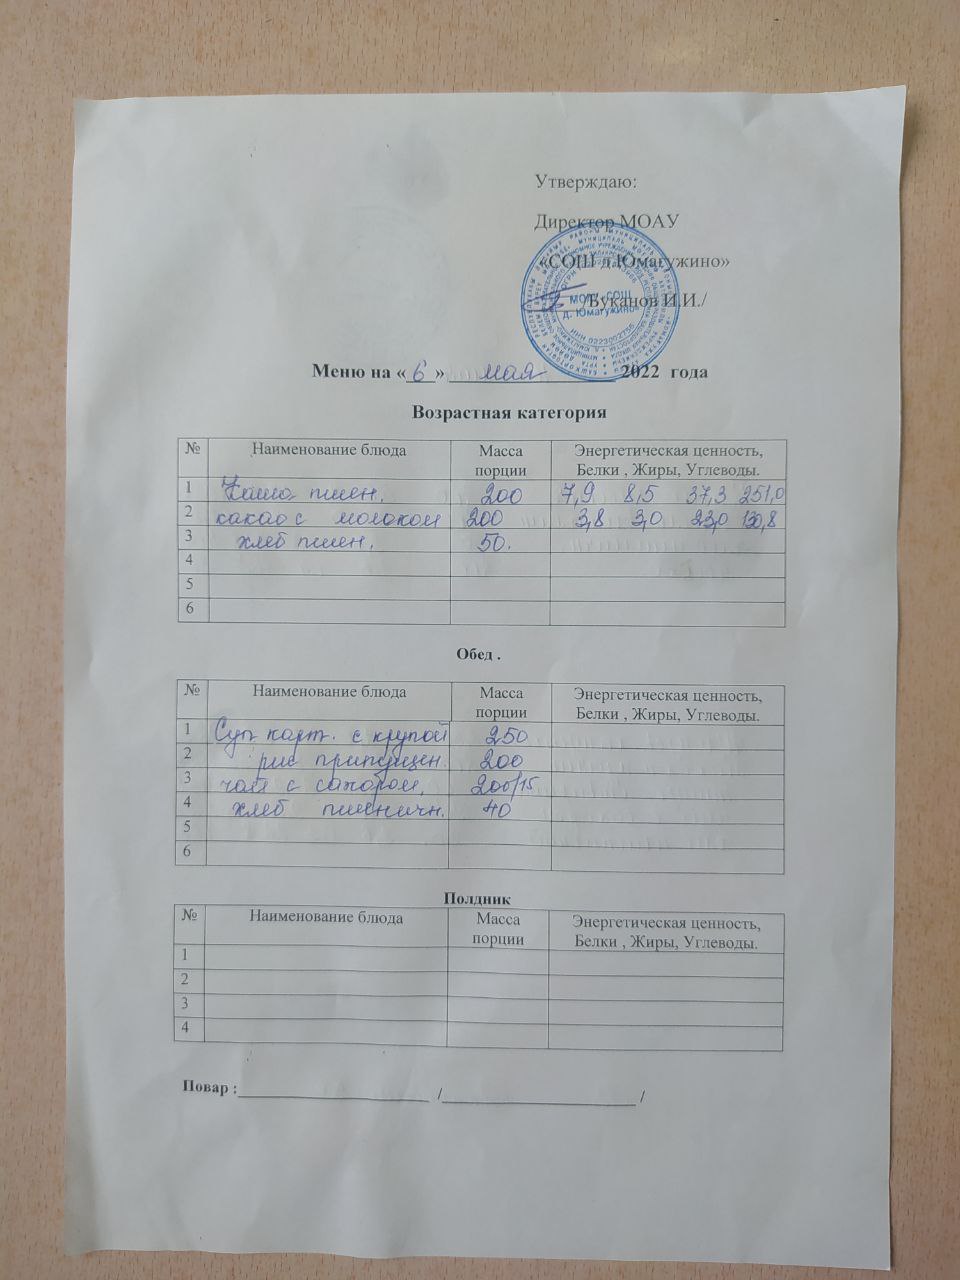 Утверждаю:
Директор МОАУ
«СОШ д.Юмагужино»
/Буканов И.И./
МОАУ «СОШ
д. Юмагужино»
Меню на « 6 » мая 2022 года
Возрастная категория
№ Наименование блюда Масса порции Энергетическая ценность, Белки , Жиры, Углеводы.
1 Каша пшен. 200 7,9 8,5 37,3 251,0
2 какао с молоком 200 3,8 3,0 23,0 130,8
3 хлеб пшен. 50.
4
5
6
Обед .
№ Наименование блюда Масса порции Энергетическая ценность, Белки , Жиры, Углеводы.
1 Суп карт. с крупой 250
2 рис припущен. 200
3 чай с сахаром. 200/15
4 хлеб пшеничн. 40
5
6
Полдник
№ Наименование блюда Масса порции Энергетическая ценность, Белки , Жиры, Углеводы.
1
2
3
4
Повар :____________________ /____________________ /